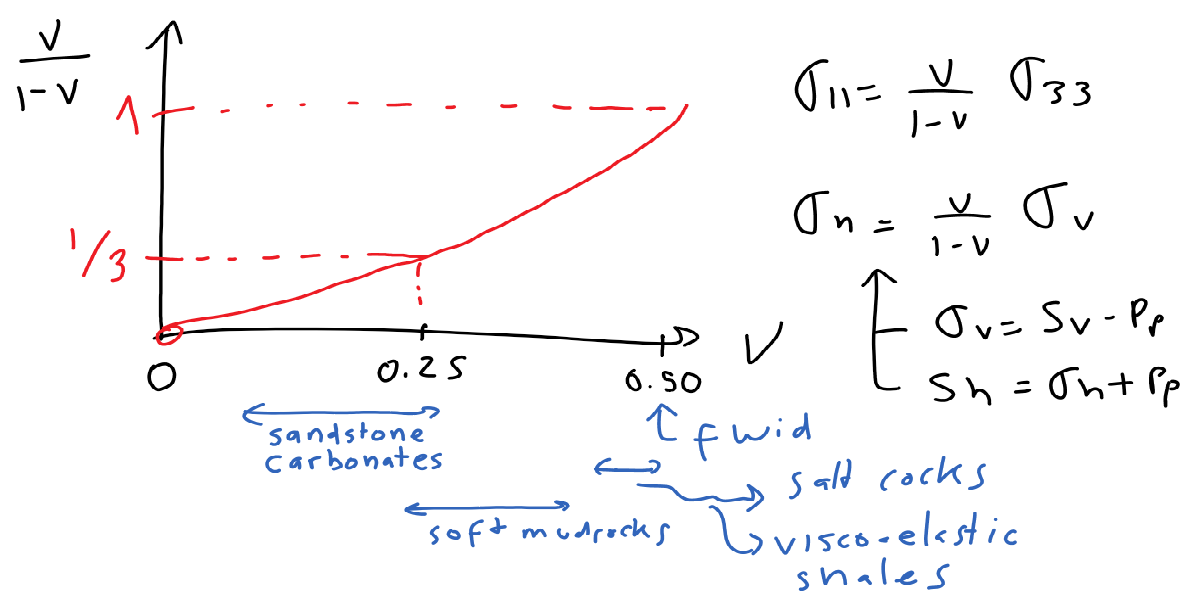 ν/(1-ν)
1
1/3
0
0.25
0.50
ν
sandstone
carbonates
fluid
soft mudrocks
salt rocks
visco-elastic
shales
σ11 = ν/(1-ν) σ33
σh = ν/(1-ν) σv
σv = Sv - Pp
Sh = σh + Pp